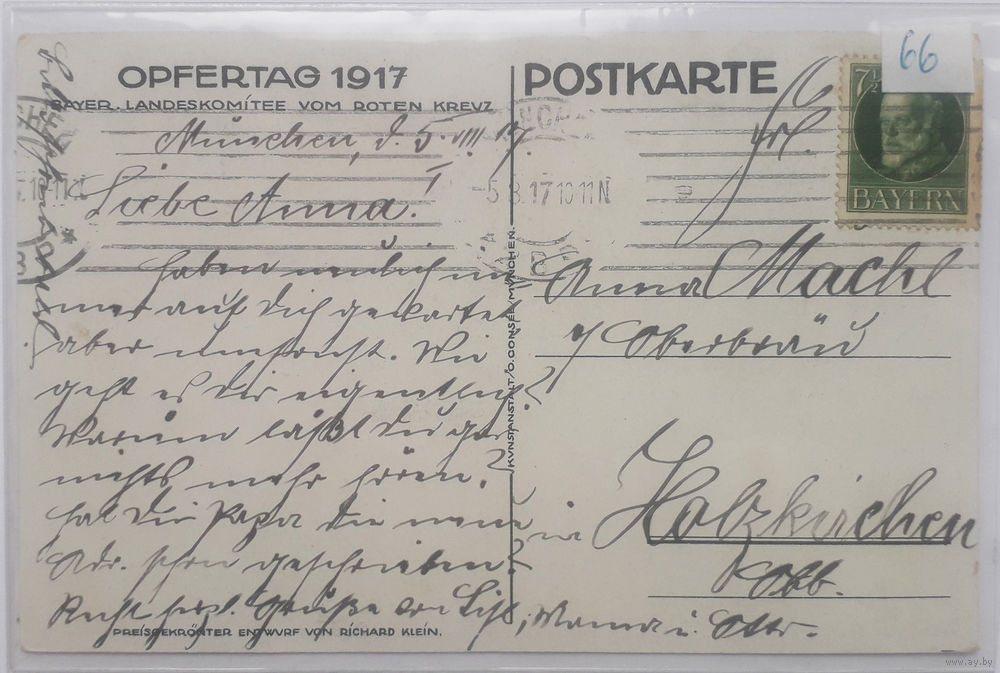 OPFERTAG 1917
BAYER. LANDESKOMITEE VOM ROTEN KREVZ
München, d. 5. VIII 17.
Liebe Anna!
haben neulich im-
mer auf Dich gewartet
aber umsonst. Wie
geht es Dir eigentlich?
Warum läßt Du gar
nichts mehr hören?
Hat Dir Papa die neue
Adr. schon geschrieben?
Recht herzl. Grüße von
Mama u.
PREISGEKRÖNTER ENTWVRF VON RICHARD KLEIN.
KVNSTANSTALT O. CONSÉE MÜNCHEN.
POSTKARTE
66
7½
BAYERN
-5.8.17 10-11N
B
Frl.
Anna Machl
z/ Oberbräu
in Holzkirchen
Obb.
www.ay.by